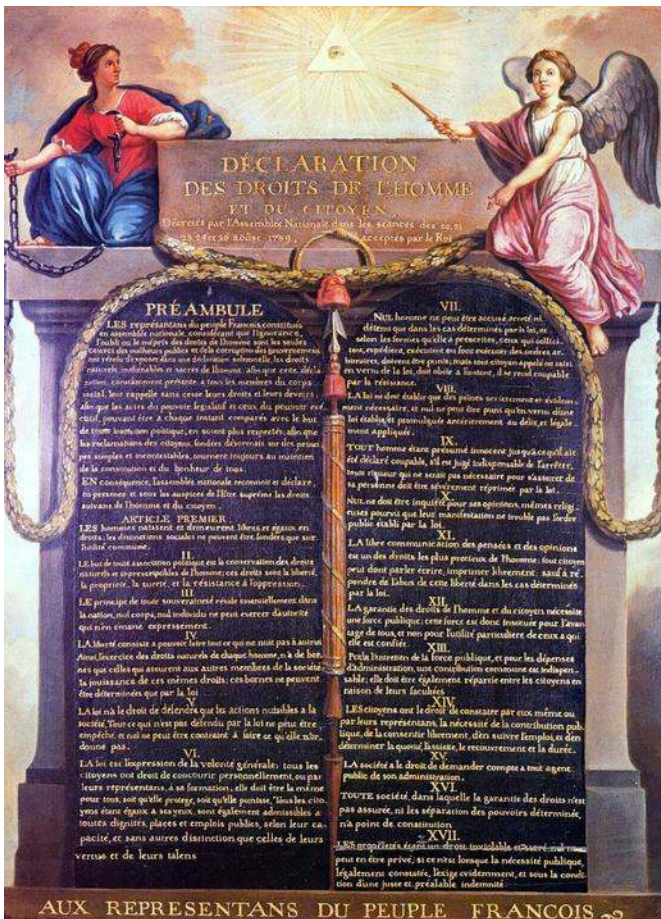 DÉCLARATION
DES DROITS DE L'HOMME
ET DU CITOYEN,
Décretés par l'Assemblée Nationale dans les séances des 20, 21
23, 24 et 26 aoûst 1789, acceptés par le Roi
PRÉAMBULE
LES représentans du peuple François, constitués
en assemblée nationale, considérant que l'ignorance,
l'oubli ou le mépris des droits de l'homme sont les seules
causes des malheurs publics et de la corruption des gouvernemens
ont résolu d'exposer dans une déclaration solemnelle, les droits
naturels, inaliénables et sacrés de l'homme: afin que cette décla
ration, constamment présente a tous les membres du corps
social, leur rappelle sans cesse leurs droits et leurs devoirs,
afin que les actes du pouvoir législatif et ceux du pouvoir exé
cutif, pouvant être à chaque instant comparés avec le but
de toute institution politique, en soient plus respectés; afin que
les réclamations des citoyens, fondées désormais sur des princi
pes simples et incontestables, tournent toujours au maintien
de la constitution et du bonheur de tous.
EN conséquence, l'assemblée nationale reconnoit et déclare,
en présence et sous les auspices de l'Etre suprême les droits
suivans de l'homme et du citoyen.
ARTICLE PREMIER.
LES hommes naissent et demeurent libres et égaux en
droits; les distinctions sociales ne peuvent être fondées que sur
l'utilité commune.
II.
LE but de toute association politique est la conservation des droits
naturels et imprescriptibles de l'homme; ces droits sont la liberté,
la propriété, la sureté, et la résistance à l'oppression.
III.
LE principe de toute souveraineté réside essentiellement dans
la nation, nul corps, nul individu ne peut exercer d'autorité
qui n'en émane expressement.
IV.
LA liberté consiste a pouvoir faire tout ce qui ne nuit pas à autrui
Ainsi, l'exercice des droits naturels de chaque homme, n'a de bor-
nes que celles qui assurent aux autres membres de la société
la jouissance de ces mêmes droits; ces bornes ne peuvent
être déterminées que par la loi
V.
LA loi n'a le droit de défendre que les actions nuisibles à la
société. Tout ce qui n'est pas défendu par la loi ne peut être
empêché, et nul ne peut être contraint à faire ce qu'elle n'or-
donne pas.
VI.
LA loi est l'expression de la volonté générale; tous les
citoyens ont droit de concourir personnellement, ou par
leurs représentans, à sa formation; elle doit être la même
pour tous, soit qu'elle protege, soit qu'elle punisse. Tous les cito-
yens étant égaux à ses yeux, sont également admissibles à
toutes dignités, places et emplois publics, selon leur ca-
pacité, et sans autres distinction que celles de leurs
vertus et de leurs talens
VII.
NUL homme ne peut être accusé, arreté ni
détenu que dans les cas déterminés par la loi, et
selon les formes qu'elle a prescrites, ceux qui sollici-
tent, expédient, exécutent ou font exécuter des ordres ar-
bitraires, doivent être punis; mais tout citoyen appelé ou saisi
en vertu de la loi, doit obéir a l'instant, il se rend coupable
par la résistance.
VIII.
LA loi ne doit établir que des peines strictement et évidem-
ment nécessaire, et nul ne peut être puni qu'en vertu d'une
loi établie et promulguée antérierement au délit, et légale
ment appliquée.
IX.
TOUT homme étant présumé innocent jusqu'a ce qu'il ait
été déclaré coupable, s'il est jugé indispensable de l'arrêter,
toute rigueur qui ne serait pas nécessaire pour s'assurer de
sa personne doit être sévèrement réprimée par la loi.
X.
NUL ne doit être inquiété pour ses opinions, mêmes religi
euses pourvu que leur manifestation ne trouble pas l'ordre
public établi par la loi.
XI.
LA libre communication des pensées et des opinions
est un des droits les plus precieux de l'homme; tout citoyen
peut donc parler écrire, imprimer librement; sauf à ré
pondre de l'abus de cette liberté dans les cas déterminés
par la loi.
XII.
LA garantie des droits de l'homme et du citoyen nécessite
une force publique; cette force est donc instituée pour l'avan-
tage de tous, et non pour l'utilité particuliere de ceux a qui
elle est confiée.
XIII.
Pour l'entretien de la force publique, et pour les dépenses
d'administration, une contribution commune est indispen-
sable; elle doit être également répartie entre les citoyens en
raison de leurs facultées
XIV.
LES citoyens ont le droit de constater par eux même ou
par leurs représentans, la nécessité de la contribution pub-
lique, de la consentir librement, d'en suivre l'emploi, et d'en
déterminer la quotité, l'assiette, le recouvrement et la durée.
XV.
LA société a le droit de demander compte a tout agent
public de son administration.
XVI.
TOUTE société, dans laquelle la garantie des droits n'est
pas assurée, ni les séparation des pouvoirs déterminée,
n'a point de constitution
XVII.
LES propriétés étant un droit inviolable et sacré, nul ne
peut en être privé, si ce n'est lorsque la nécessité publique,
légalement constatée, l'exige evidemment, et sous la condi-
tion d'une juste et préalable indemnité.
AUX REPRESENTANS DU PEUPLE FRANCOIS